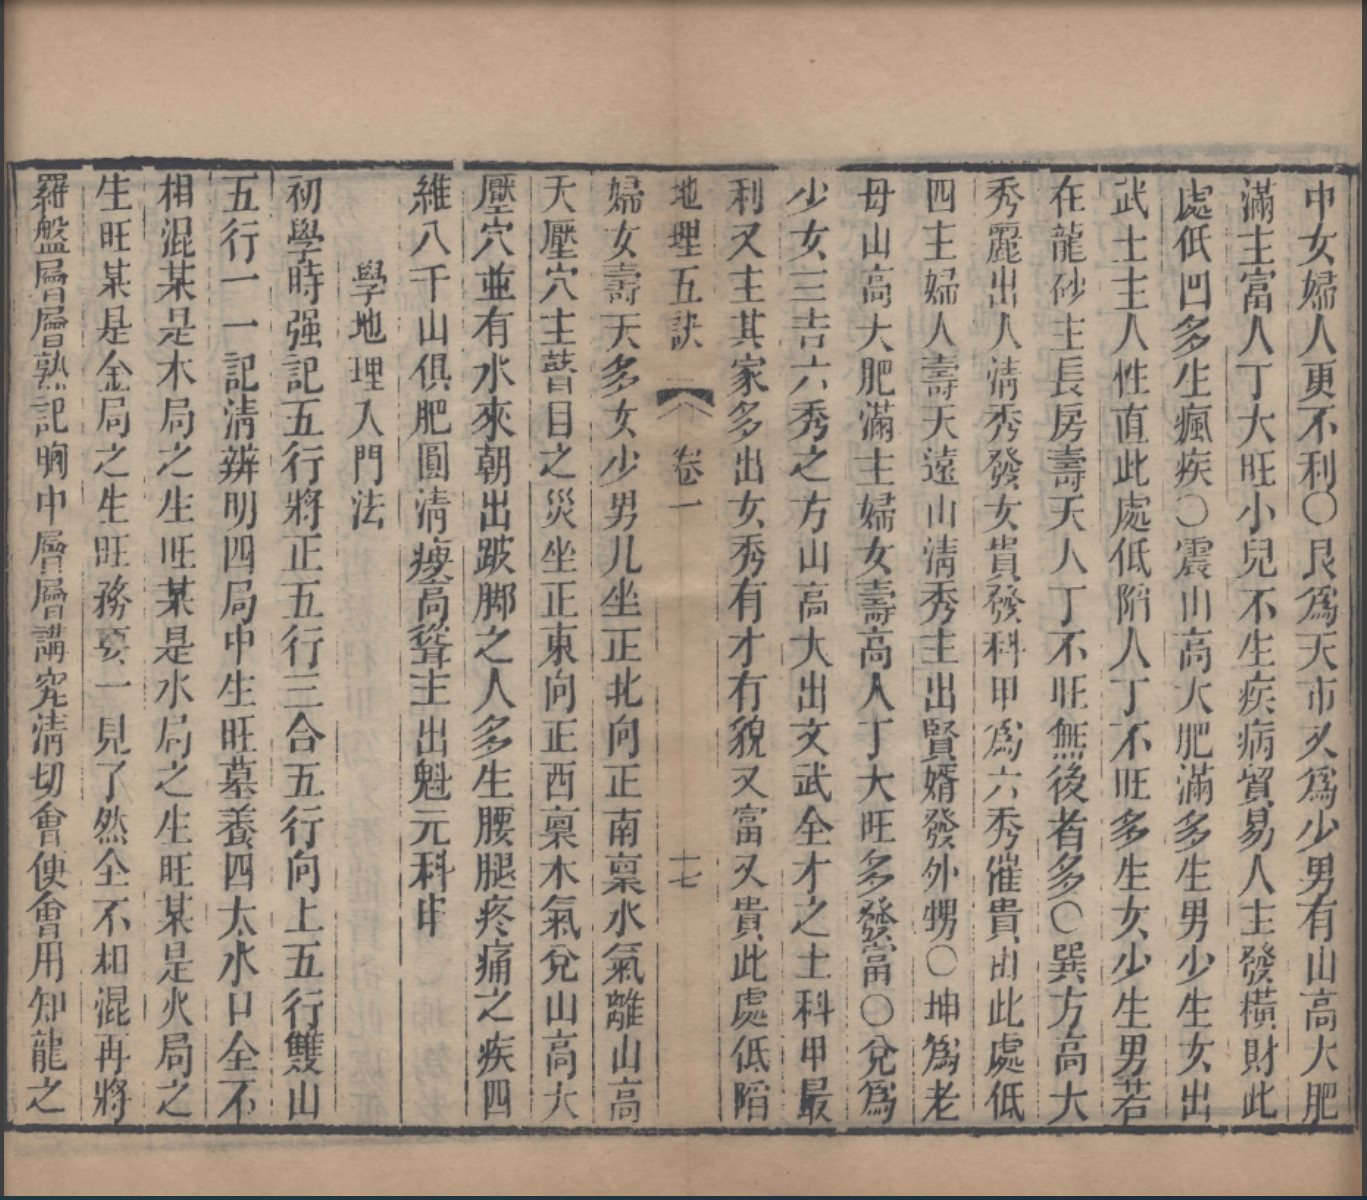 中女婦人更不利〇艮爲天市又爲少男有山高大肥
滿主富人丁大旺小兒不生疾病貿易人主發橫財此
處低凹多生瘋疾〇震山高大肥滿多生男少生女出
武士主人性直此處低陷人丁不旺多生女少生男若
在龍砂主長房壽夭人丁不旺無後者多〇巽方高大
秀麗出人清秀發女貴發科甲爲六秀催貴由此處低
四主婦人壽夭遠山清秀主出賢婿發外甥〇坤爲老
母山高大肥滿主婦女壽高人丁大旺多發富〇兌爲
少女三吉六秀之方山高大出文武全才之士科甲最
利又主其家多出女秀有才有貌又富又貴此處低陷
地理五訣 卷一 十七
婦女壽夭多女少男凡坐正北向正南稟水氣離山高
大壓穴主瞽目之災坐正東向正西稟木氣兌山高大
壓穴並有水來朝出跛脚之人多生腰腿疼痛之疾四
維八千山俱肥圓清瘦高聳主出魁元科甲
學地理入門法
初學時强記五行將正五行三合五行向上五行雙山
五行一一記清辨明四局中生旺墓養四大水口全不
相混某是木局之生旺某是水局之生旺某是火局之
生旺某是金局之生旺務要一見了然全不相混再將
羅盤層層熟記胸中層層講究清切會使會用知龍之